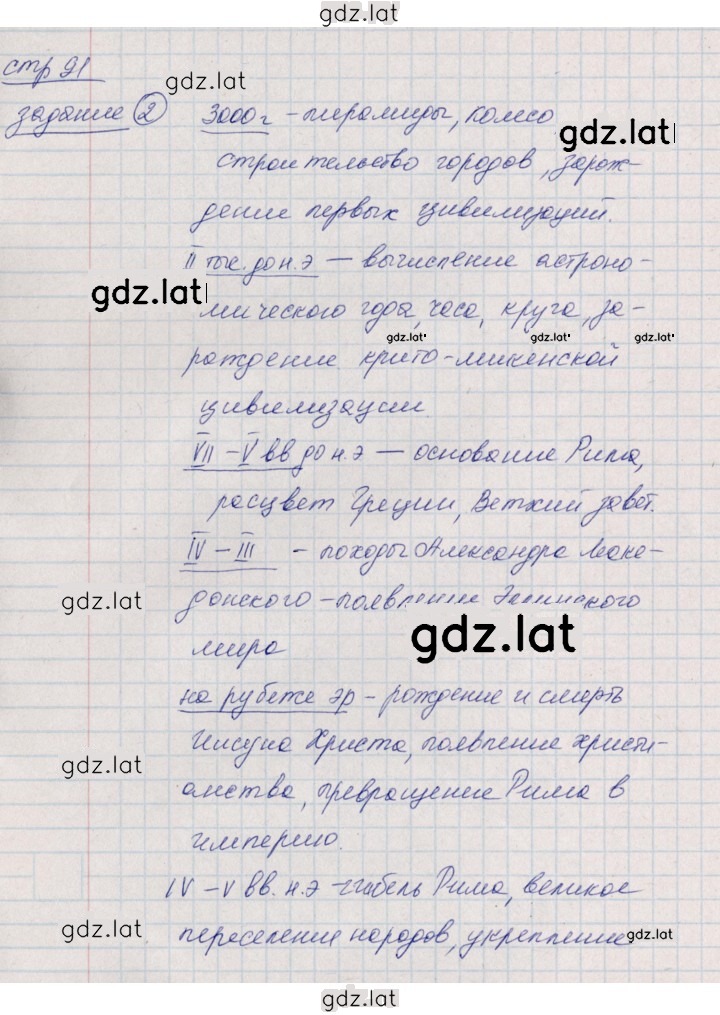 gdz.lat
стр 91
gdz.lat
задание 2 3000 г - пирамиды, колесо
gdz.lat
строительство городов, зарож-
дение первых цивилизаций.
II тыс. до н.э — вычисление астроно-
gdz.lat
мического года, часа, круга, за-
gdz.lat gdz.lat gdz.lat
рождение крито-микенской
цивилизации
VII – V вв до н.э — основание Рима,
расцвет Греции, Ветхий завет.
IV – III - походы Александра Маке-
gdz.lat
донского - появление Эллинского
gdz.lat
мира
на рубеже эр - рождение и смерть
Иисуса Христа, появление христи-
gdz.lat
анства, превращение Рима в
империю.
IV – V вв. н.э - гибель Рима, великое
gdz.lat
переселение народов, укрепление
gdz.lat
gdz.lat